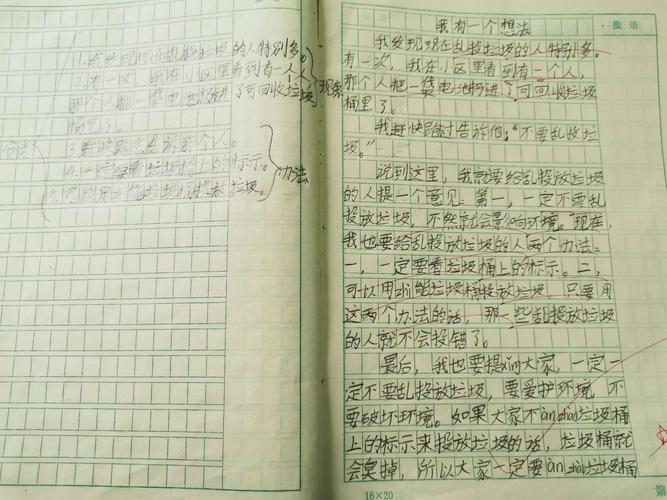 1.我发现现在乱投垃圾的人特别多。
2.有一次,我在小区里看到有一个人,
那个人把一袋电池扔进了可回收垃圾
桶里了。
现象
3.赶快跑过告诉那个人。
4.一定要看垃圾桶上的标示。
办法
我有一个想法
批语
我发现现在乱投垃圾的人特别多。
有一次,我在小区里看到有一个人,
那个人把一袋电池扔进了可回收垃圾
桶里了。
我赶快跑过告诉他:“不要乱投垃
圾。”
说到这里,我就要给乱投放垃圾
的人提一个意见:第一,一定不要乱
投放垃圾,不然就会影响环境。现在,
我也要给乱投放垃圾的人两个办法:
一,一定要看垃圾桶上的标示。二,
可以用zhì能垃圾桶投放垃圾,只要用
这两个办法的话,那一些乱投放垃圾
的人就不会投错了。
最后,我也要提xǐng大家,一定一
定不要乱投放垃圾,要爱护环境,不
要破坏环境。如果大家不àn zhào垃圾桶
上的标示来投放垃圾的话,垃圾桶就
会臭掉,所以大家一定要àn zhào垃圾桶
16×20
第